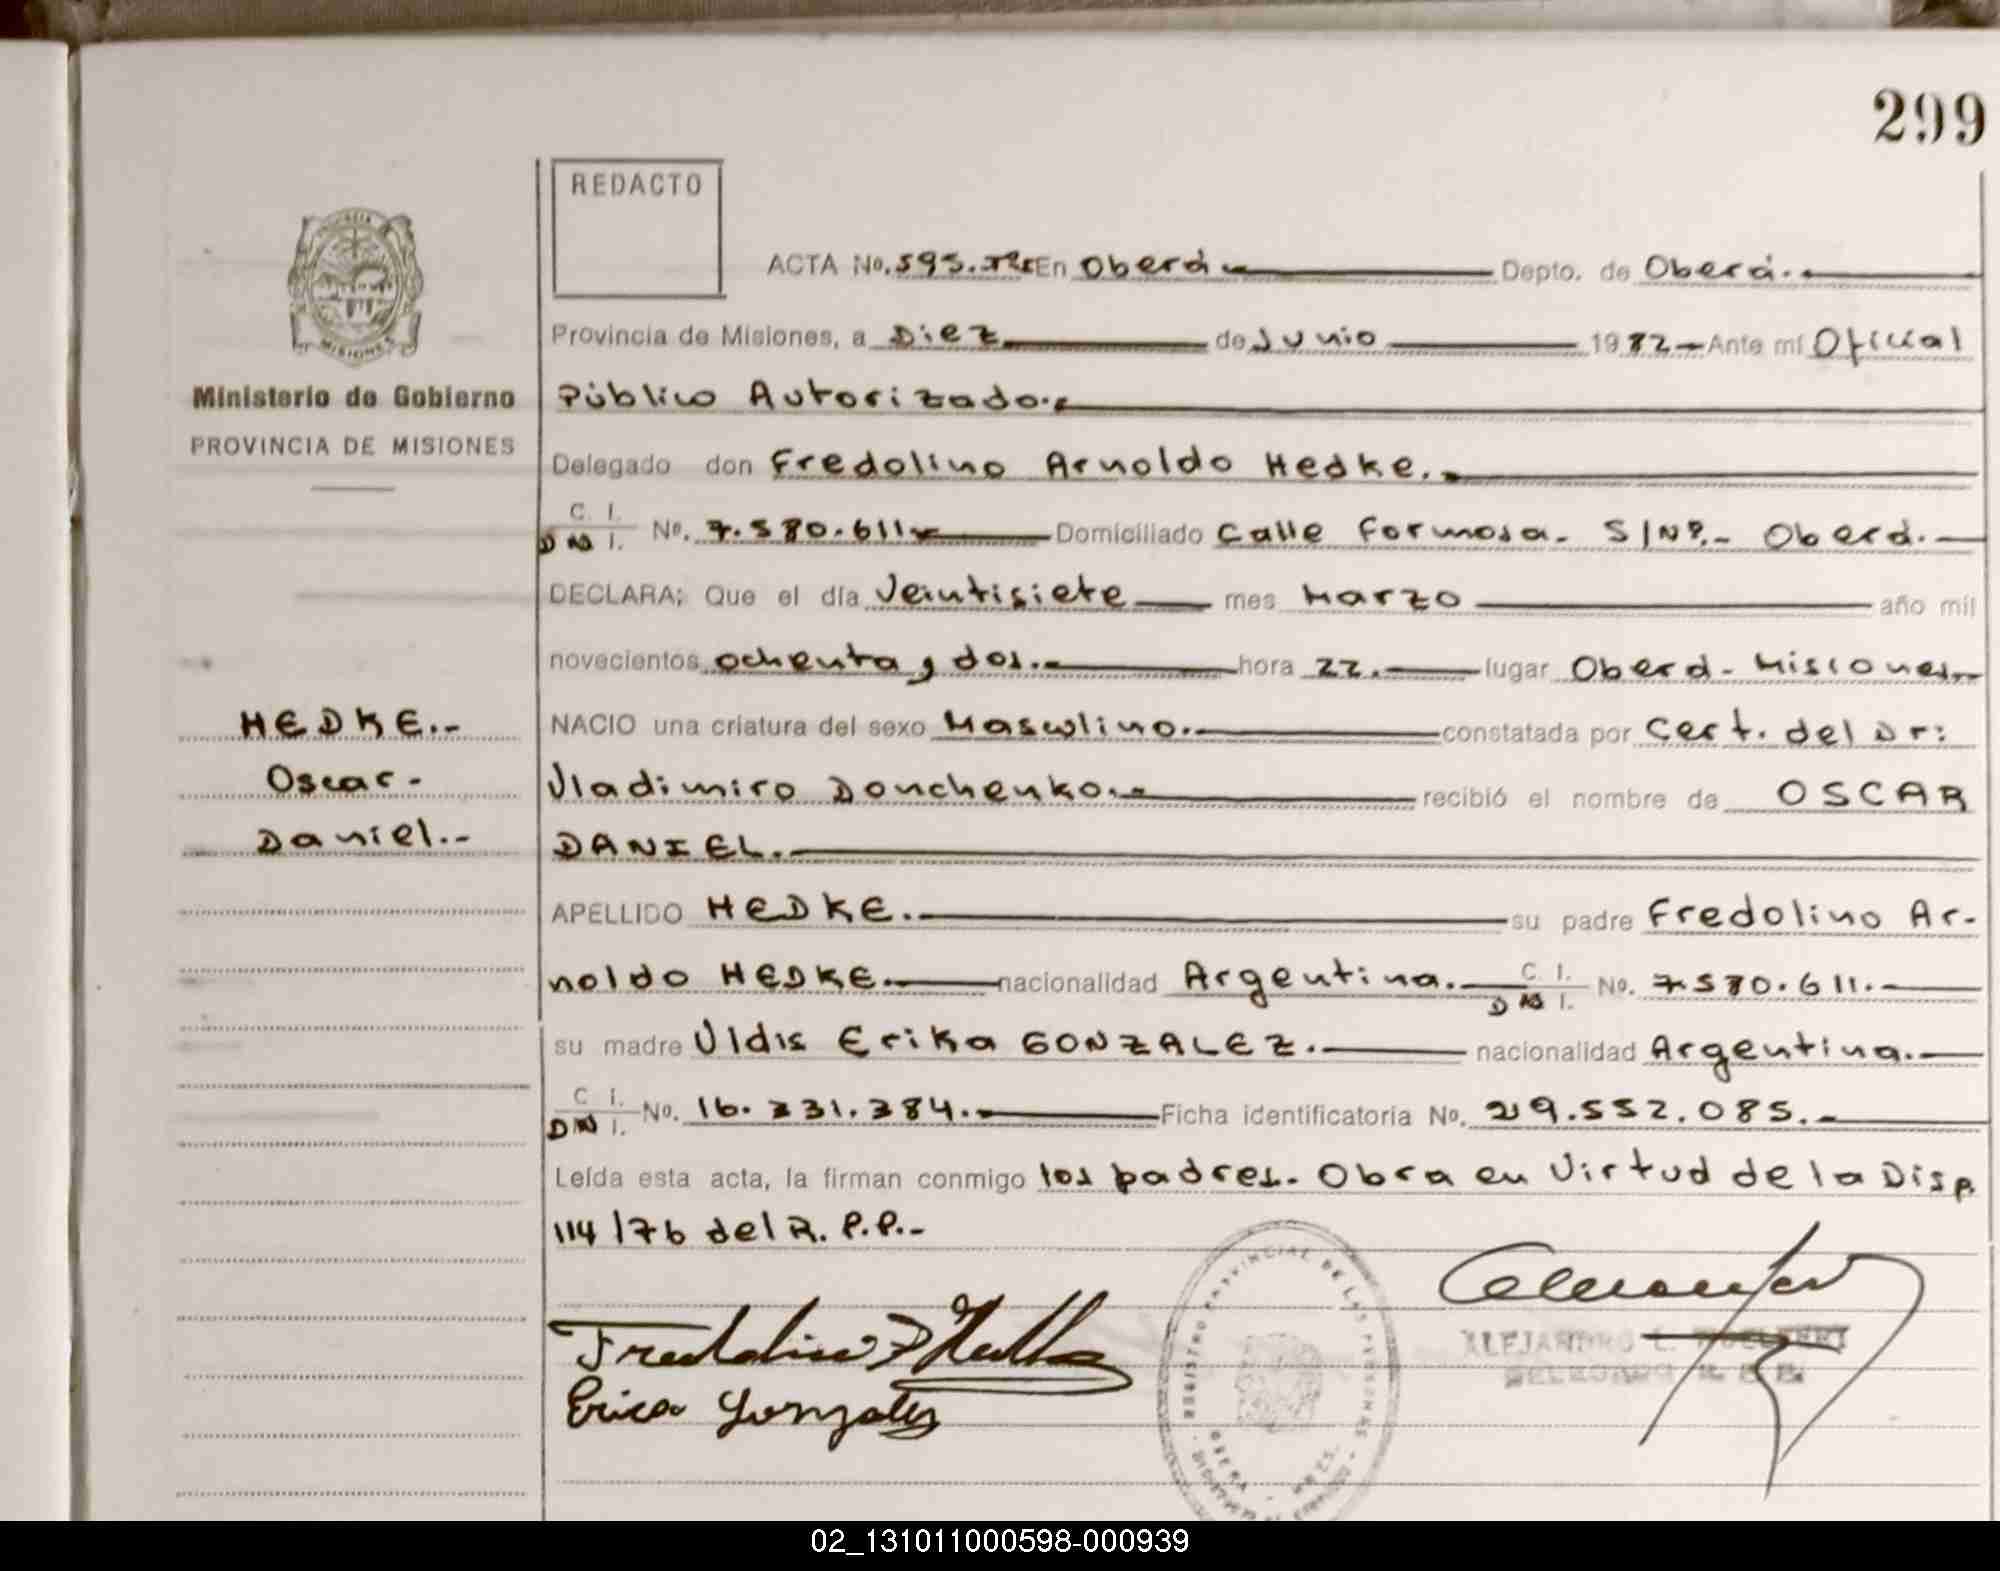 299
REDACTO
ACTA No. 595. En Oberá Depto. de Oberá.
Provincia de Misiones, a Diez de Junio 1982 Ante mí Oficial
Ministerio de Gobierno
Público Autorizado.
PROVINCIA DE MISIONES
Delegado don Fredolino Arnoldo Hedke.
C. I.
D N I. No. 7.580.611 Domiciliado Calle Formosa. S/Nº.- Oberá.
DECLARA; Que el día Veintisiete mes Marzo año mil
novecientos ochenta y dos. hora 22. lugar Oberá - Misiones.
HEDKE.-
NACIO una criatura del sexo Masculino. constatada por Cert. del Dr:
Oscar-
Vladimiro Donchenko. recibió el nombre de OSCAR
Daniel.-
DANIEL.
APELLIDO HEDKE. su padre Fredolino Ar-
noldo HEDKE. nacionalidad Argentina. C. I. D N I. No. 7.580.611.
su madre Uldis Erika GONZALEZ. nacionalidad Argentina.
C I.
D N I. No. 16. 331.384. Ficha identificatoria No. 29.552.085.
Leída esta acta, la firman conmigo los padres. Obra en Virtud de la Disp.
114/76 del R. P.P.-
Erica Gonzalez
REGISTRO PROVINCIAL DE LAS PERSONAS
OBERA
MISIONES
ALEJANDRO L.
DELEGADO R. P. P.
02_131011000598-000939